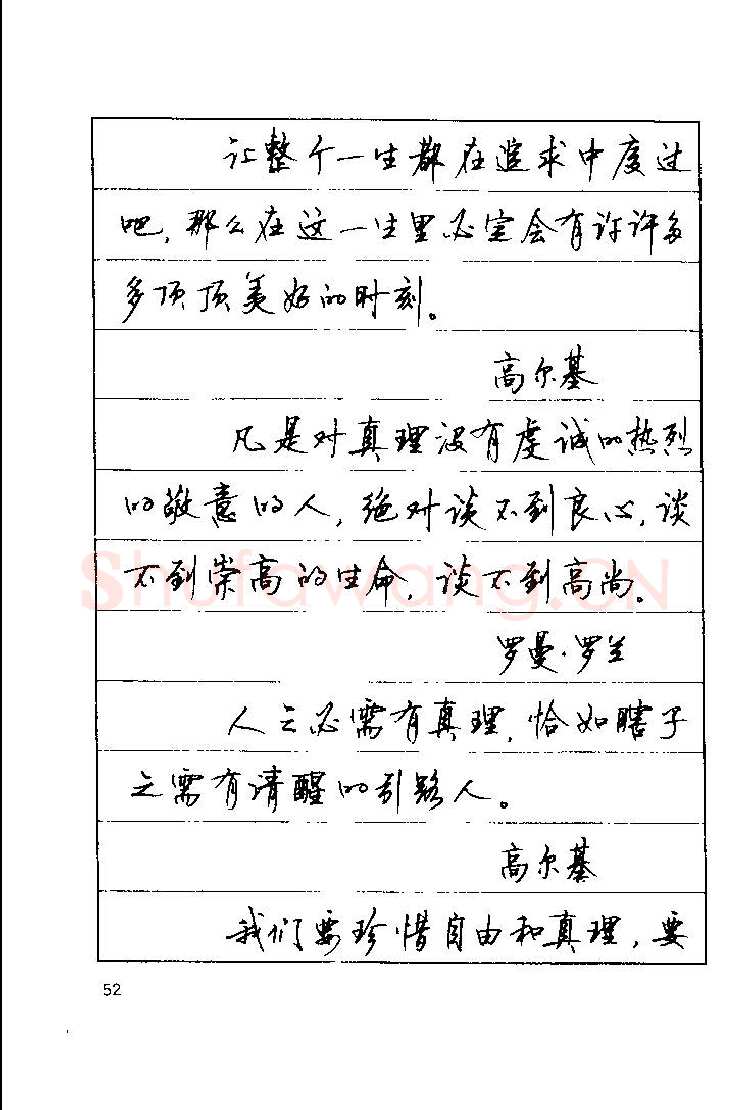 让整个一生都在追求中度过
吧,那么在这一生里必定会有许许多
多顶顶美好的时刻。
高尔基
凡是对真理没有虔诚的热烈
的敬意的人,绝对谈不到良心,谈
不到崇高的生命,谈不到高尚。
罗曼·罗兰
人之必需有真理,恰如瞎子
之需有清醒的引路人。
高尔基
我们要珍惜自由和真理,要
52
Shufawang.CN